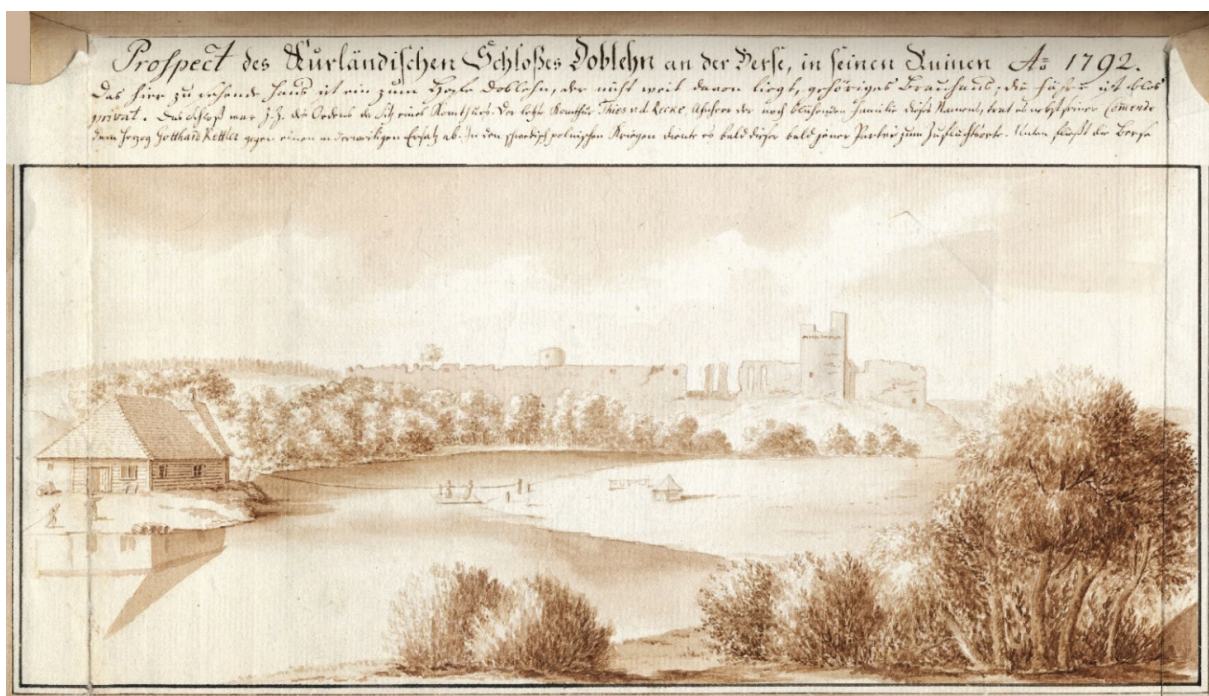 Prospect des Kurländischen Schloßes Doblehn an der Berse, in seinen Ruinen Aº 1792.
Das hier zu sehende Haus ist ein zum Hofe Doblehn, der nicht weit davon liegt, gehöriges Brauhaus, die Fähre ist blos
privat. Das Schloß war z. Z. des Ordens der Sitz eines Komthurs. Der letzte Komthur Thies v. d. Recke, der noch blühenden Familie dieses Namens, trat es nebst seiner Comende
dem Herzog Gotthard Kettler gegen einen anderweitigen Ersatz ab. In den schwedisch polnischen Kriegen diente es bald dieser bald jener Partei zum Zufluchtsorte. Unten fließt die Berse